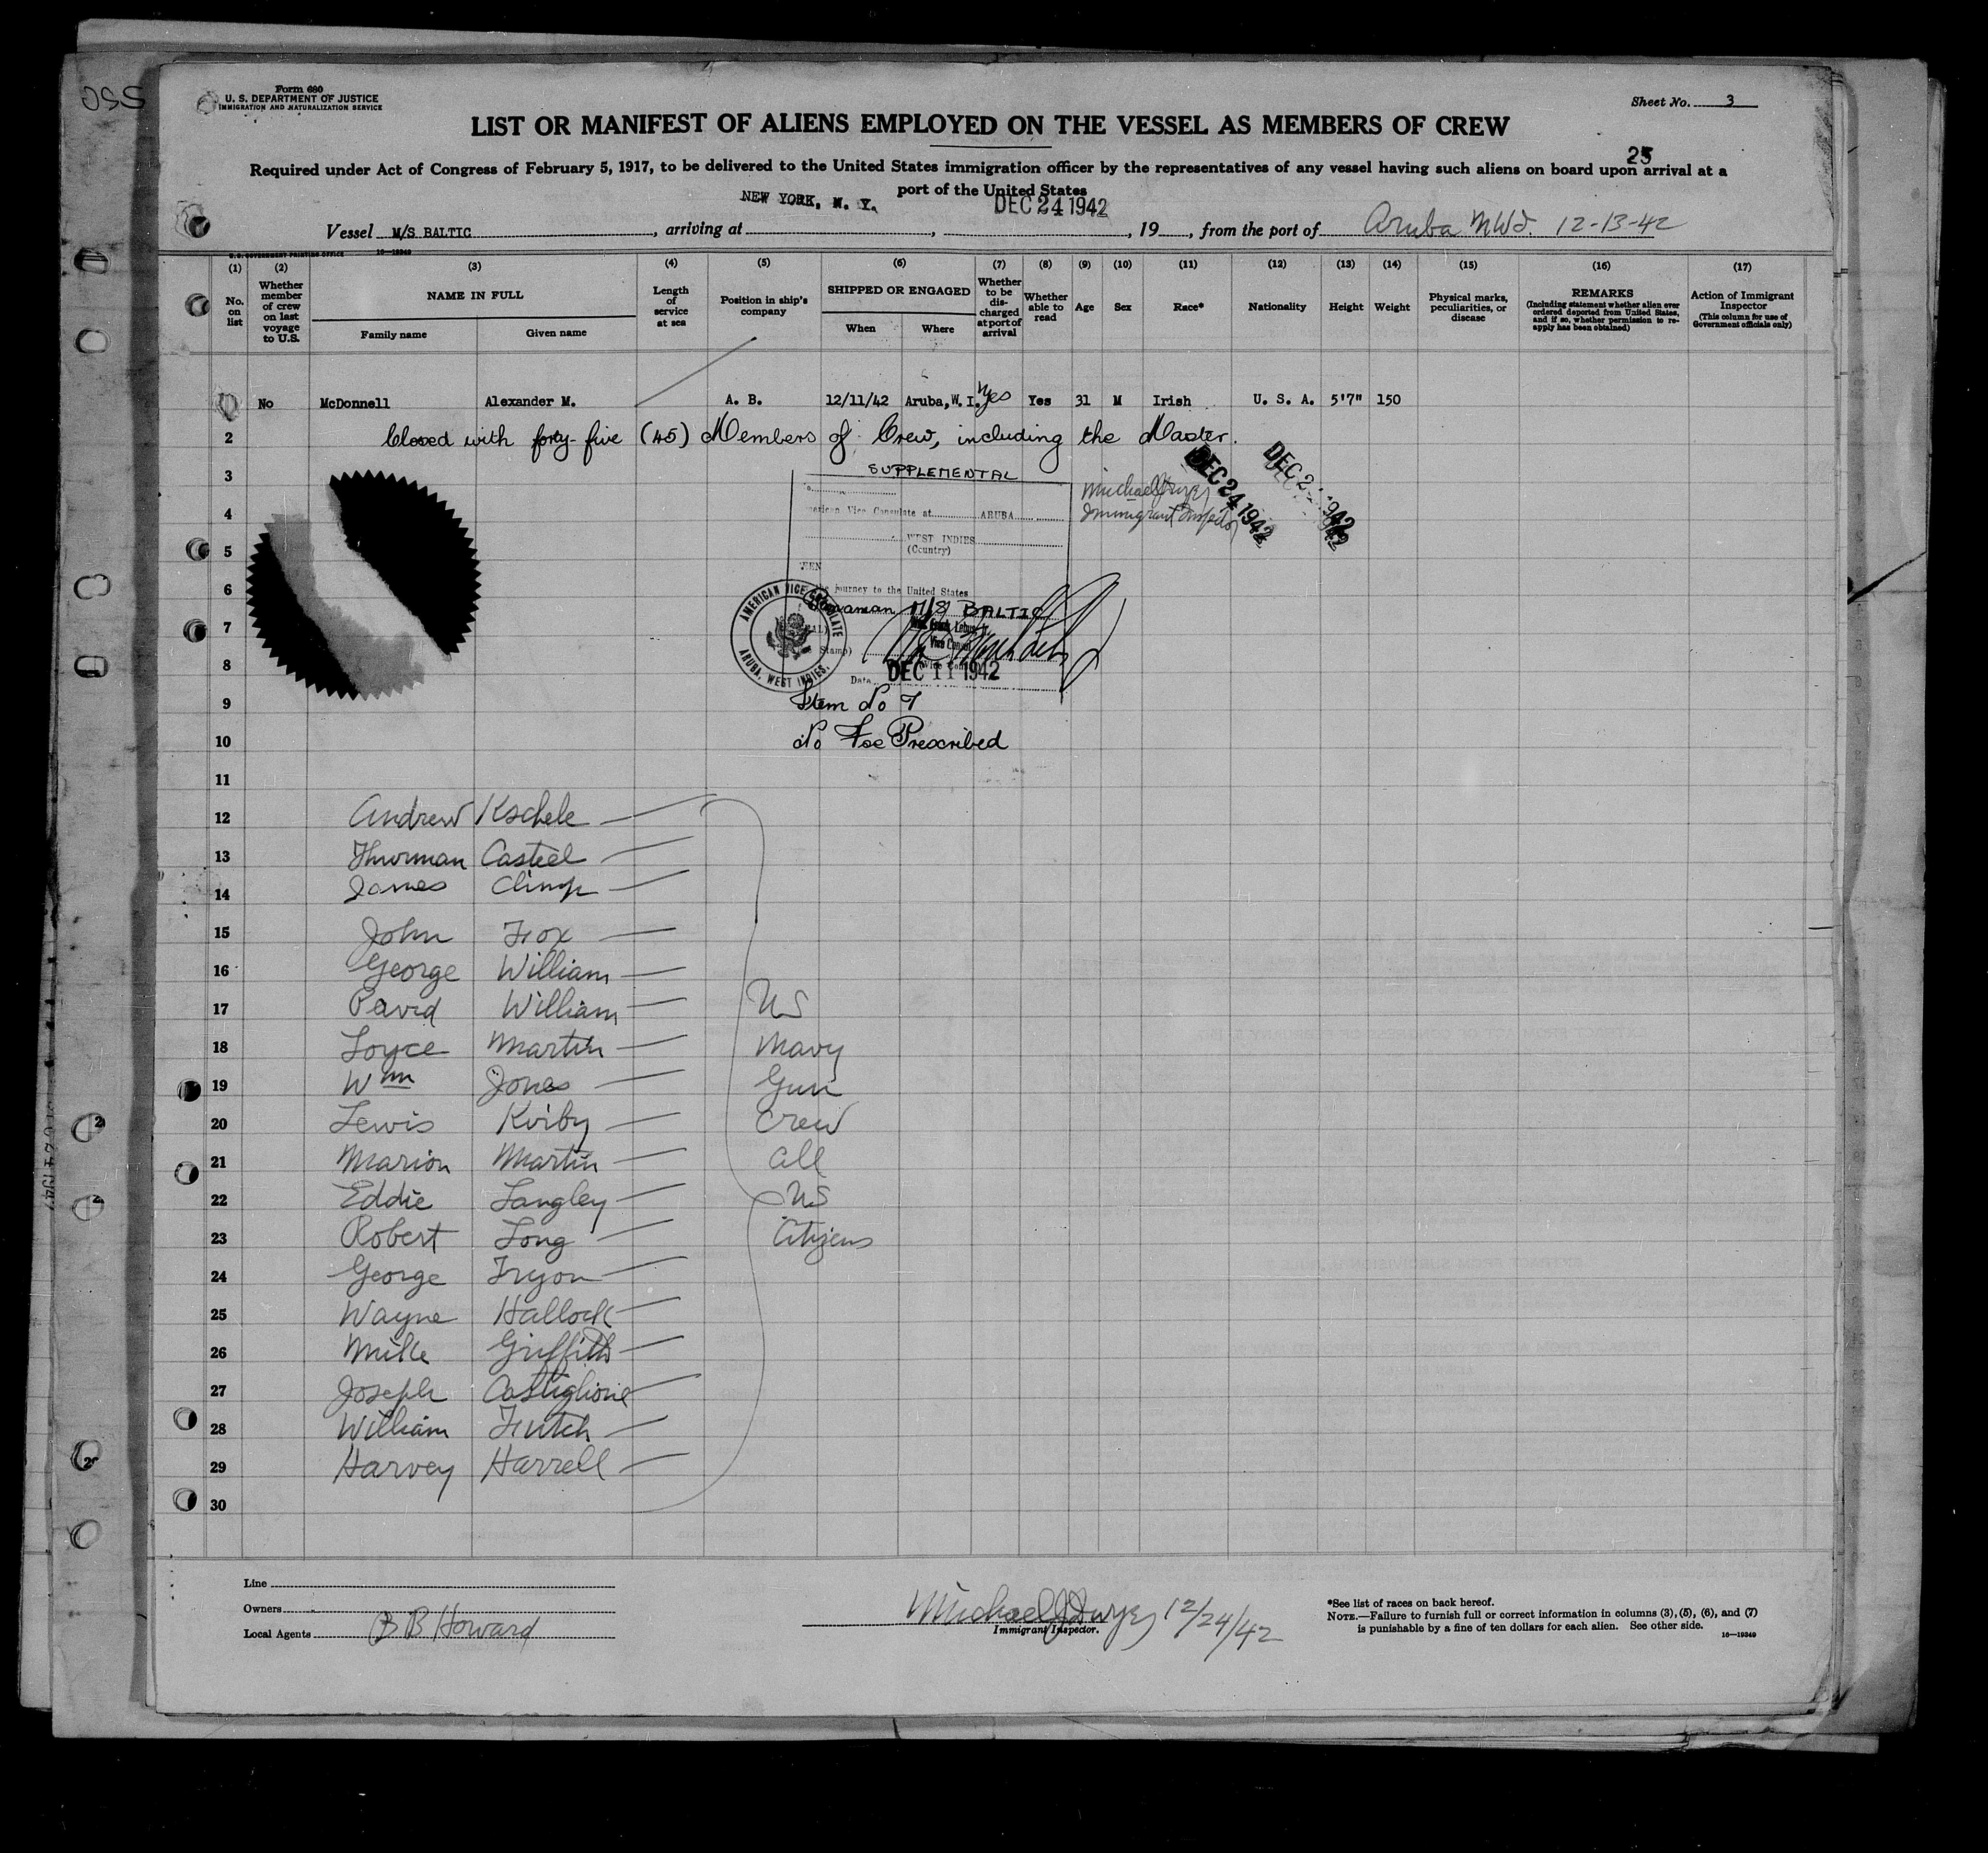 Form 680
U. S. DEPARTMENT OF JUSTICE
IMMIGRATION AND NATURALIZATION SERVICE
Sheet No. 3
LIST OR MANIFEST OF ALIENS EMPLOYED ON THE VESSEL AS MEMBERS OF CREW
25
Required under Act of Congress of February 5, 1917, to be delivered to the United States immigration officer by the representatives of any vessel having such aliens on board upon arrival at a
port of the United States
NEW YORK, N. Y. DEC 24 1942
Vessel M/S BALTIC, arriving at , , 19 , from the port of Aruba NWI. 12-13-42
U.S. GOVERNMENT PRINTING OFFICE 16-19349
(1) (2) (3) (4) (5) (6) (7) (8) (9) (10) (11) (12) (13) (14) (15) (16) (17)
No. on list
Whether member of crew on last voyage to U.S.
NAME IN FULL
Family name Given name
Length of service at sea
Position in ship's company
SHIPPED OR ENGAGED
When Where
Whether to be discharged at port of arrival
Whether able to read
Age
Sex
Race*
Nationality
Height
Weight
Physical marks, peculiarities, or disease
REMARKS
(Including statement whether alien ever ordered deported from United States, and if so, whether permission to re-apply has been obtained)
Action of Immigrant Inspector
(This column for use of Government officials only)
No McDonnell Alexander M. A. B. 12/11/42 Aruba, W. I. Yes Yes 31 M Irish U. S. A. 5'7" 150
2 Closed with forty-five (45) Members of Crew, including the Master.
3 SUPPLEMENTAL
Michael J Dwyer DEC 24 1942
4 American Vice Consulate at ARUBA
Immigrant Inspector
5 WEST INDIES
(Country)
6 journey to the United States
Seaman M/S BALTIC
7 AMERICAN VICE CONSULATE
ARUBA, WEST INDIES
Vice Consul
8 Date DEC 11 1942
9 Item No 7
10 No Fee Prescribed
11
12 Andrew Kschele
13 Thurman Casteel
14 James Climp
15 John Fox
16 George William
17 David William US
18 Loyce Martin Navy
19 Wm Jones Gun
20 Lewis Kirby Crew
21 Marion Martin all
22 Eddie Langley US
23 Robert Long Citizens
24 George Tryon
25 Wayne Hallock
26 Mike Griffith
27 Joseph Castiglione
28 William Futch
29 Harvey Harrell
30
Line
Owners
Local Agents B B Howard
Michael J Dwyer 12/24/42
Immigrant Inspector.
*See list of races on back hereof.
NOTE.—Failure to furnish full or correct information in columns (3), (5), (6), and (7)
is punishable by a fine of ten dollars for each alien. See other side.
16—19349